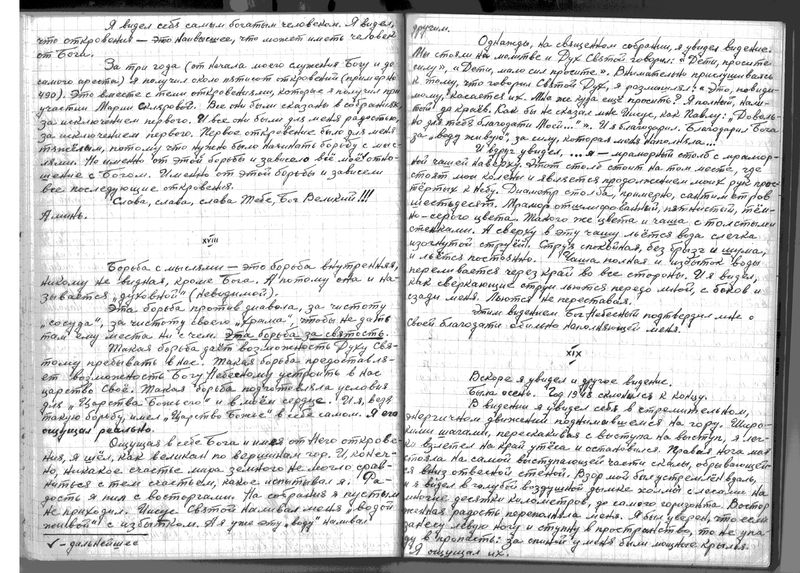 Я видел себя самым богатым человеком. Я видел,
что откровения — это наивысшее, что может иметь человек
от Бога.
За три года (от начала моего служения Богу и до
самого ареста) я получил около пятисот откровений (примерно
490). Это вместе с теми откровениями, которые я получил при
участии Марии Скляровой. Все они были сказаны в собраниях,
за исключением первого. И все они были для меня радостью,
за исключением первого. Первое откровение было для меня
тяжёлым, потому что нужно было начинать борьбу с мыс-
лями. Но именно от этой борьбы и зависело всё моё отно-
шение с Богом. Именно от этой борьбы и зависели
все последующие откровения.
Слава, слава, слава Тебе, Бог Великий!!!
Аминь.
XVIII
Борьба с мыслями — это борьба внутренняя,
никому не видная, кроме Бога. А потому она и на-
зывается „духовной" (невидимой).
Эта борьба против диавола, за чистоту
„сосуда", за чистоту своего „храма", чтобы не дать
там ему места ни с чем. Эта борьба за святость.
Такая борьба даёт возможность Духу Свя-
тому пребывать в нас. Такая борьба предоставля-
ет возможность Богу Небесному устроить в нас
царство Своё. Такая борьба подготовляла условия
для „Царства Божьего" и в моём сердце. И я, ведя
такую борьбу, имел „Царство Божье" в себе самом. Я его
ощущал реально.
Ощущая в себе Бога и имея от Него открове-
ния, я шёл, как великан по вершинам гор. И, конеч-
но, никакое счастье мира земного не могло срав-
ниться с тем счастьем, какое испытывал я. Ра-
дость я пил с восторгами. На собрания я пустым
не приходил. Иисус Святой наливал меня „водой
живой" с избытком. А я уже эту „воду" наливал
√ - дальнейшее
другим.
Однажды, на священном собрании, я увидел видение.
Мы стояли на молитве и Дух Святой говорил: „Дети, просите
силу", „Дети, мало сил просите". Внимательно прислушиваясь
к тому, что говорил Святой Дух, я размышлял: „Это, повиди-
мому, касается их. Мне же куда ещё просить? Я полный, нали-
той до краёв. Как бы не сказал мне Иисус, как Павлу: „Доволь-
но для тебя благодати Моей..."". И я благодарил. Благодарил Бога
за „воду живую", за силу, которая меня наполняла...
И вдруг увидел, ... я — мраморный столб с мрамор-
ной чашей наверху. Этот столб стоит на том месте, где
стоят мои колени и является продолжением моих рук прос-
тёртых к небу. Диаметр столба, примерно, сантиметров
шестьдесят. Мрамор отшлифованный, пятнистый, тём-
но-серого цвета. Такого же цвета и чаша с толстыми
стенками. А сверху в эту чашу льётся вода слегка
изогнутой струёй. Струя спокойная, без брызг и шума,
и льётся постоянно. Чаша полная и избыток воды
переливается через край во все стороны. И я видел,
как сверкающие струи льются передо мной, с боков и
сзади меня. Льются не переставая.
Этим видением Бог Небесный подтвердил мне о
Своей благодати обильно наполняющей меня.
XIX
Вскоре я увидел и другое видение.
Была осень. Год 1948 склонился к концу.
В видении я увидел себя в стремительном,
энергичном движении поднимавшемся на гору. Широ-
кими шагами, перескакивая с выступа на выступ, я лег-
ко взлетел на край утёса и остановился. Правая нога моя
стояла на самой выступающей части скалы, обрывающей-
ся вниз отвесной стеной. Взор мой был устремлён вдаль,
и я видел в голубой воздушной дымке холмы с лесами на
многие десятки километров, до самого горизонта. Востор-
женная радость переполняла меня. Я был уверен, что если
занесу левую ногу и ступлю в пространство, то не упа-
ду в пропасть: за спиной у меня были мощные крылья.
Я ощущал их.